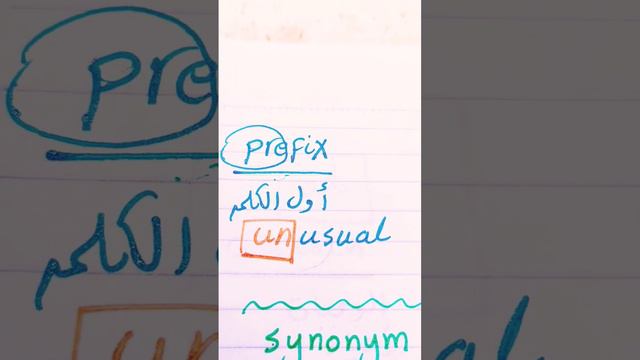 prefix
أول الكلمه
unusual
synonym